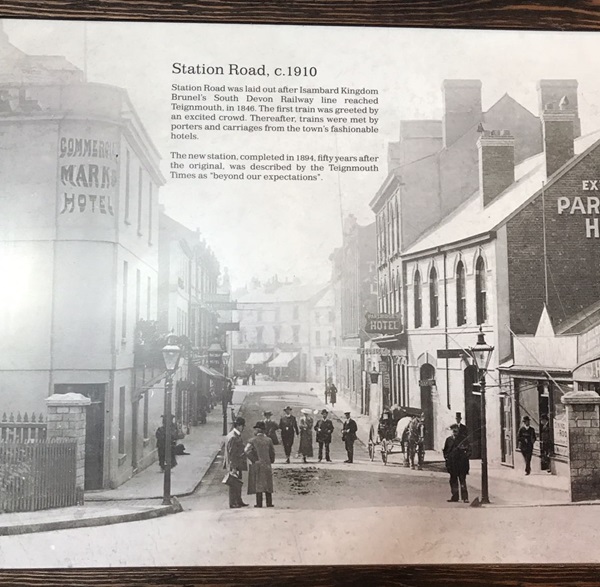 Station Road, c.1910
Station Road was laid out after Isambard Kingdom
Brunel's South Devon Railway line reached
Teignmouth, in 1846. The first train was greeted by
an excited crowd. Thereafter, trains were met by
porters and carriages from the town's fashionable
hotels.
The new station, completed in 1894, fifty years after
the original, was described by the Teignmouth
Times as "beyond our expectations".
MARK
HOTEL
HOTEL
EX
PAR
H